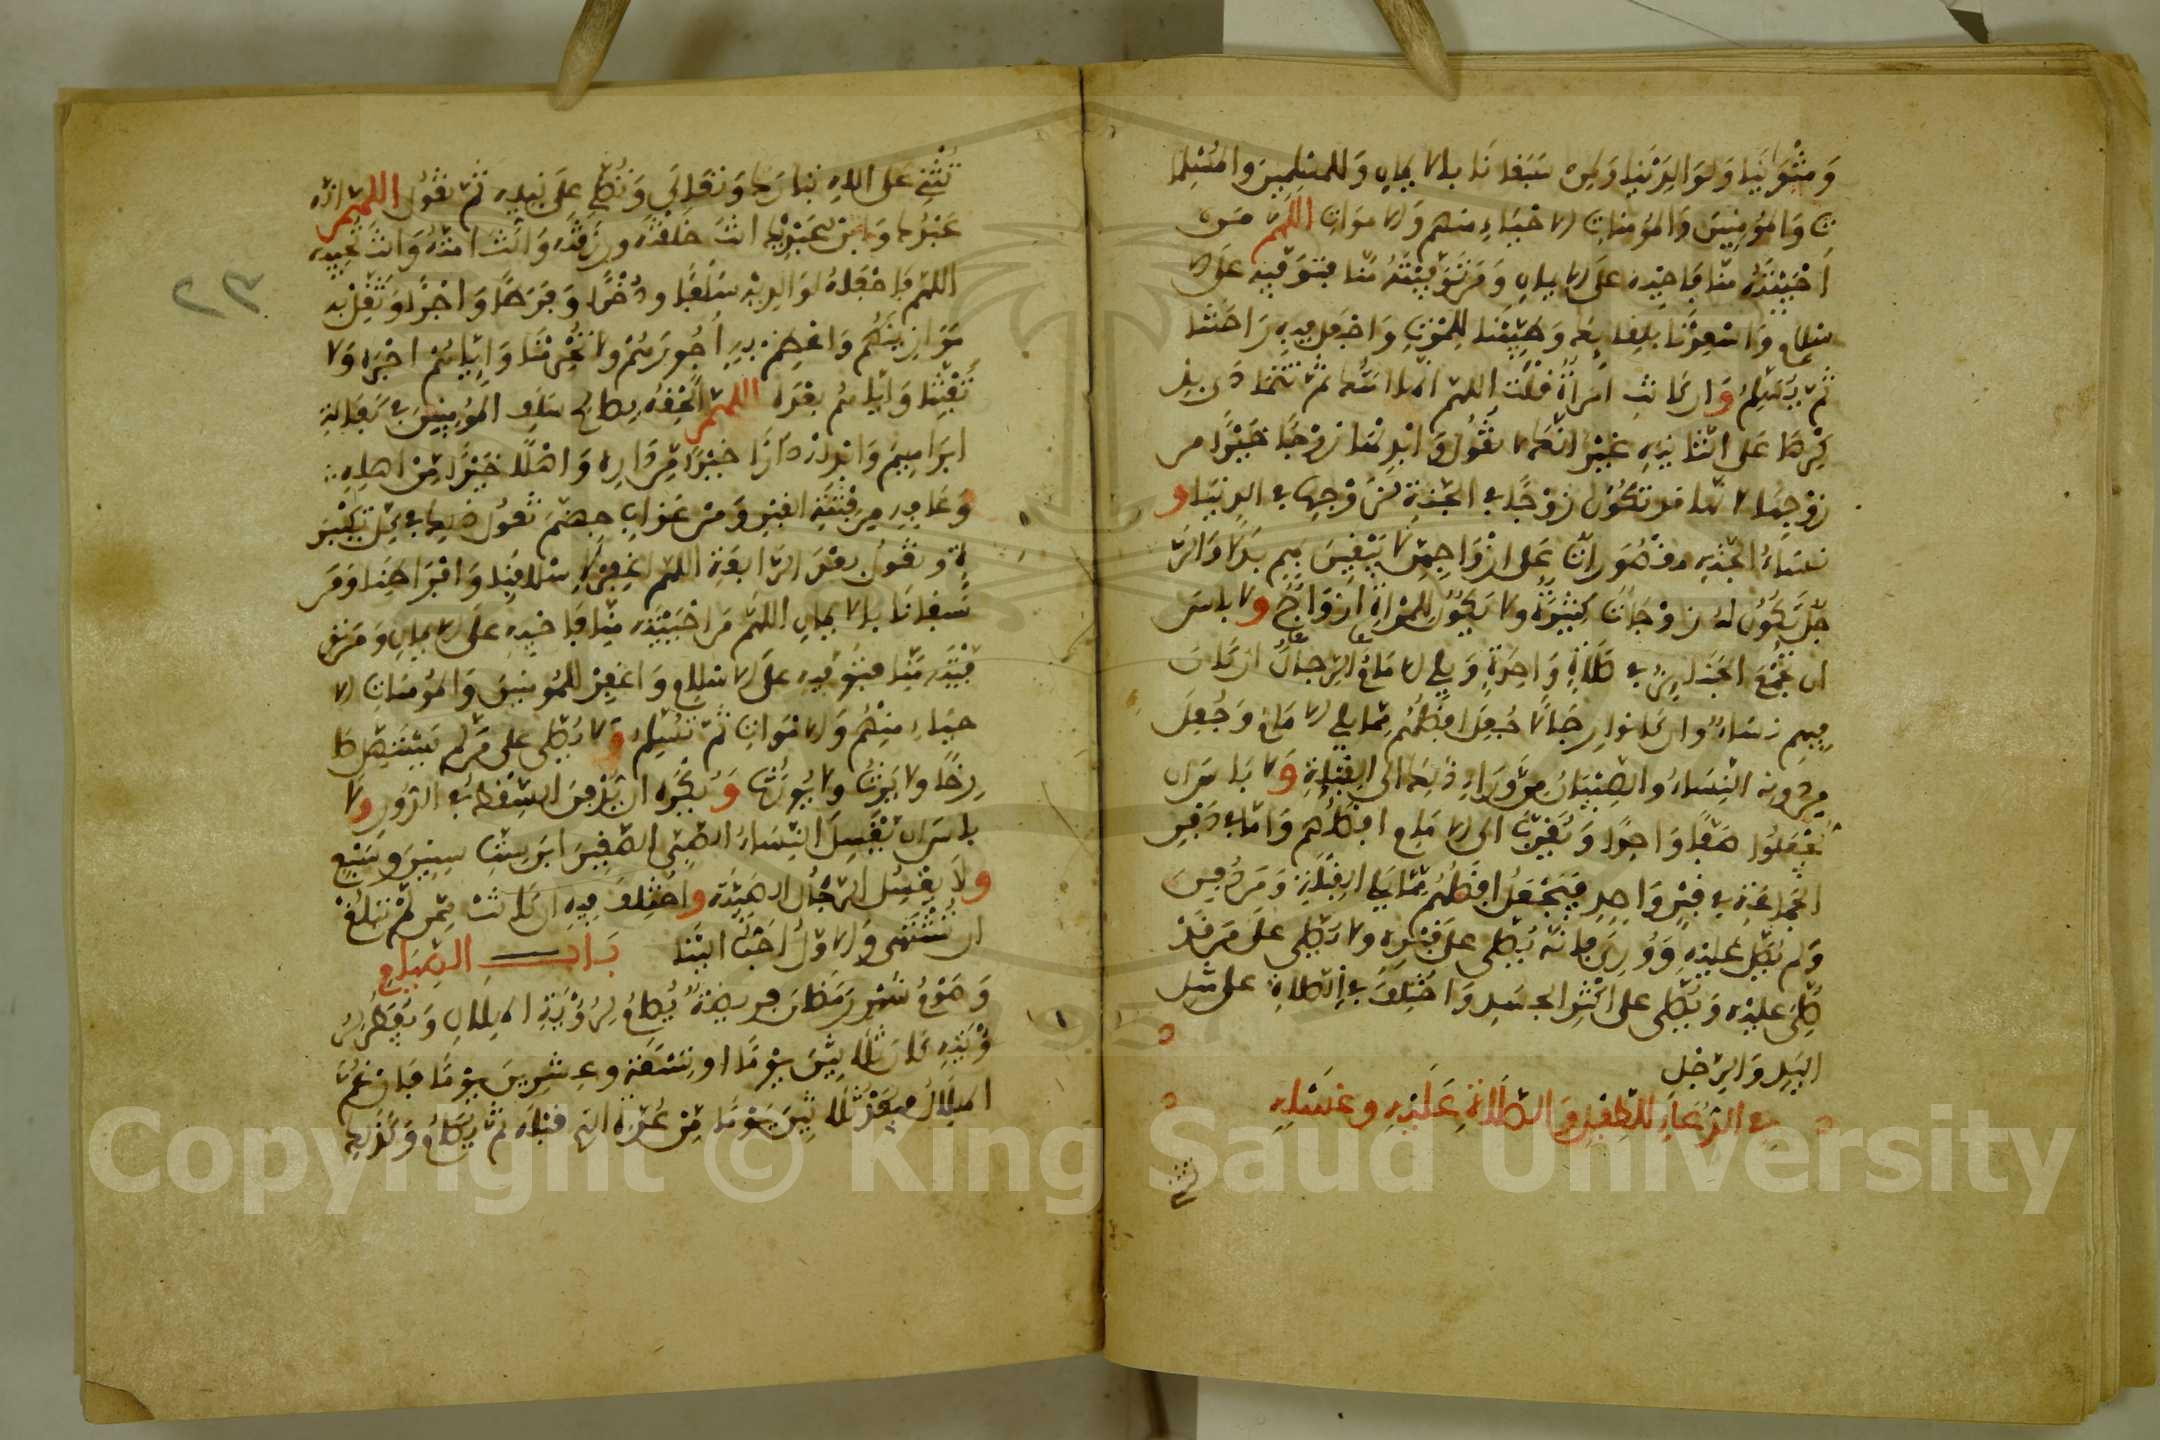 وَمَثْوَيْنَا وَلِوَالِدَيْنَا وَلِمَن سَبَقَنَا بِالايمَانِ وَلِلْمُسْلِمِينَ وَالْمُسْلِمَا
تِ وَالْمُومِنِينَ وَالْمُومِنَاتِ الاحْيَاءِ مِنْهُم وَالامْوَاتِ اللَّهُمَّ مَن
اَحْيَيْتَهُ مِنَّا فَاحْيِهِ عَلَى الايمَانِ وَمَن تَوَفَّيْتَهُ مِنَّا فَتَوَفَّهُ عَلَى الا
سْلَامِ وَاسْعِدْنَا بِلِقَائِكَ وَطَيِّبْنَا لِلْمَوْتِ وَاجْعَلْ فِيهِ رَاحَتَنَا
ثُمَّ يُسَلِّمُ وَان كَانَتِ امْرَاةً قُلْتَ اللَّهُمَّ انَّهَا امَتُكَ ثُمَّ تَتَمَادَى بِذِ
كْرِهَا عَلَى التَّانِيثِ غَيْرَ انَّكَ لَا تَقُولُ وَابْدِلْهَا زَوْجًا خَيْرًا مِن
زَوْجِهَا لانَّهَا قَد تَكُونُ زَوْجًا فِي الْجَنَّةِ لِزَوْجِهَا فِي الدُّنْيَا وَ
نِسَاءُ الْجَنَّةِ مَقْصُورَاتٌ عَلَى ازْوَاجِهِنَّ لَا يَبْغِينَ بِهِم بَدَلًا وَالرَّ
جُلُ يَكُونُ لَهُ زَوْجَاتٌ كَثِيرَةٌ وَلَا يَكُونُ لِلْمَرْاةِ ازْوَاجٌ وَلَا بَاسَ
ان تُجْمَعَ الْجَنَائِزُ فِي صَلَاةٍ وَاحِدَةٍ وَيَلِي الامَامَ الرِّجَالُ ان كَانَ
فِيهِم نِسَاءٌ وَان كَانُوا رِجَالًا جُعِلَ افْضَلُهُم مِمَّا يَلِي الامَامَ وَجُعِلَ
مِن دُونِهِ النِّسَاءُ وَالصِّبْيَانُ مِن وَرَاءِ ذَلِكَ الَى الْقِبْلَةِ وَلَا بَاسَ ان
يُجْعَلُوا صَفًّا وَاحِدًا وَيُقَرَّبُ الَى الامَامِ افْضَلُهُم وَامَّا دَفْنُ
الْجَمَاعَةِ فِي قَبْرٍ وَاحِدٍ فَيُجْعَلُ افْضَلُهُم مِمَّا يَلِي الْقِبْلَةَ وَمَن دُفِنَ
وَلَم يُصَلَّ عَلَيْهِ وَوُورِيَ فَانَّهُ يُصَلَّى عَلَى قَبْرِهِ وَلَا يُصَلَّى عَلَى مَن قَدْ
صُلِّيَ عَلَيْهِ وَيُصَلَّى عَلَى اكْثَرِ الْجَسَدِ وَاخْتُلِفَ فِي الصَّلَاةِ عَلَى مِثْلِ
الْيَدِ وَالرِّجْلِ
فِي الدُّعَاءِ لِلطِّفْلِ وَالصَّلَاةِ عَلَيْهِ وَغَسْلِهِ
تثني
تُثْنِي عَلَى اللهِ تَبَارَكَ وَتَعَالَى وَتُصَلِّي عَلَى نَبِيِّهِ ثُمَّ تَقُولُ اللَّهُمَّ انَّهُ
عَبْدُكَ وَابْنُ عَبْدِكَ انْتَ خَلَقْتَهُ وَرَزَقْتَهُ وَانْتَ امَتَّهُ وَانْتَ تُحْيِيهِ
اللَّهُمَّ فَاجْعَلْهُ لِوَالِدَيْهِ سَلَفًا وَذُخْرًا وَفَرَطًا وَاجْرًا وَثَقِّلْ بِهِ
مَوَازِينَهُم وَاعْظِمْ بِهِ اجُورَهُمْ وَلَا تَحْرِمْنَا وَايَّاهُمْ اجْرَهُ وَلَا
تَفْتِنَّا وَايَّاهُمْ بَعْدَهُ اللَّهُمَّ الْحِقْهُ بِصَالِحِ سَلَفِ الْمُومِنِينَ فِي كَفَالَةِ
ابْرَاهِيمَ وَابْدِلْهُ دَارًا خَيْرًا مِن دَارِهِ وَاهْلًا خَيْرًا مِنْ اهْلِهِ
وَعَافِهِ مِن فِتْنَةِ الْقَبْرِ وَمِن عَذَابِ جَهَنَّمَ تَقُولُ ذَلِكَ فِي كُلِّ تَكْبِيرَ
ةٍ وَتَقُولُ بَعْدَ الرَّابِعَةِ اللَّهُمَّ اغْفِرْ لِاسْلَافِنَا وَافْرَاطِنَا وَمَن
سَبَقَنَا بِالايمَانِ اللَّهُمَّ مَن احْيَيْتَهُ مِنَّا فَاحْيِهِ عَلَى الايمَانِ وَمَن تَوَ
فَّيْتَهُ مِنَّا فَتَوَفَّهُ عَلَى الاسْلَامِ وَاغْفِرْ لِلْمُومِنِينَ وَالْمُومِنَاتِ الا
حيَاءِ مِنْهُم وَالامْوَاتِ ثُمَّ تُسَلِّمُ وَلَا يُصَلَّى عَلَى مَن لَم يَسْتَهِلَّ صَا
رِخًا وَلَا يَرِثُ وَلَا يُورَثُ وَيُكْرَهُ ان يُدْفَنَ السِّقْطُ فِي الدُّورِ وَلَا
بَاسَ ان يُغَسِّلَ النِّسَاءُ الصَّبِيَّ الصَّغِيرَ ابْنَ سِتِّ سِنِينَ وَسَبْعٍ
وَلَا يُغَسِّلُ الرِّجَالُ الصَّبِيَّةَ وَاخْتُلِفَ فِيهِ ان كَانَتْ مِمَّن لَمْ تَبْلُغْ
ان تُشْتَهَى وَالاوَّلُ احَبُّ الَيْنَا بَابُ الصِّيَامِ
وَصَوْمُ شَهْرِ رَمَضَانَ فَرِيضَةٌ يُصَامُ لِرُؤْيَةِ الْهِلَالِ وَيُفْطَرُ لِرُ
ؤْيَتِهِ كَانَ ثَلَاثِينَ يَوْمًا اوْ تِسْعَةً وَعِشْرِينَ يَوْمًا فَانْ غُمَّ
الْهِلَالُ فَيُعَدُّ ثَلَاثِينَ يَوْمًا مِن غُرَّةِ الشَّهْرِ قَبْلَهُ ثُمَّ يُصَامُ وَكَذَلِكَ
٢٣
Copyright © King Saud University
1957